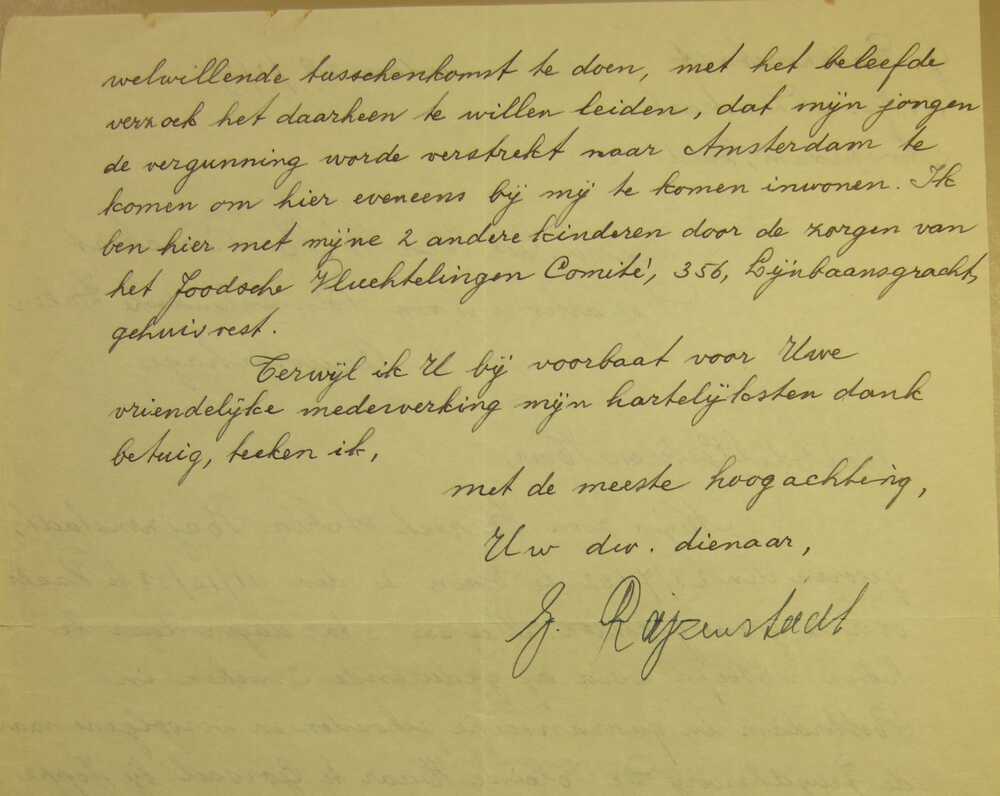 welwillende tusschenkomst te doen, met het beleefde
verzoek het daarheen te willen leiden, dat mijn jongen
de vergunning worde verstrekt naar Amsterdam te
komen om hier eveneens bij mij te komen inwonen. Ik
ben hier met mijne 2 andere kinderen door de zorgen van
het Joodsche Vluchtelingen Comité, 356, Lijnbaansgracht,
gehuisvest.
Terwijl ik U bij voorbaat voor Uwe
vriendelijke medewerking mijn hartelijksten dank
betuig, teeken ik,
met de meeste hoogachting,
Uw dw. dienaar,
Rajzenstadt